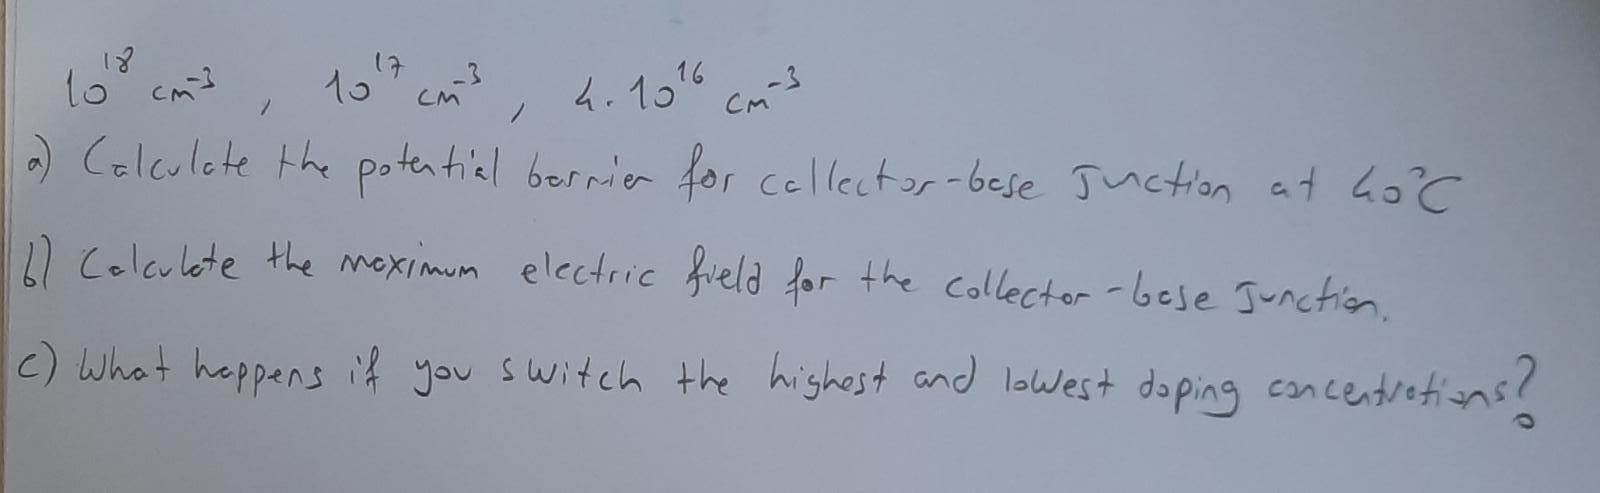 10^18 cm^-3, 10^17 cm^-3, 4.10^16 cm^-3
a) Calculate the potential barrier for collector-base Junction at 40°C
b) Calculate the maximum electric field for the collector-base Junction.
c) What happens if you switch the highest and lowest doping concentrations?